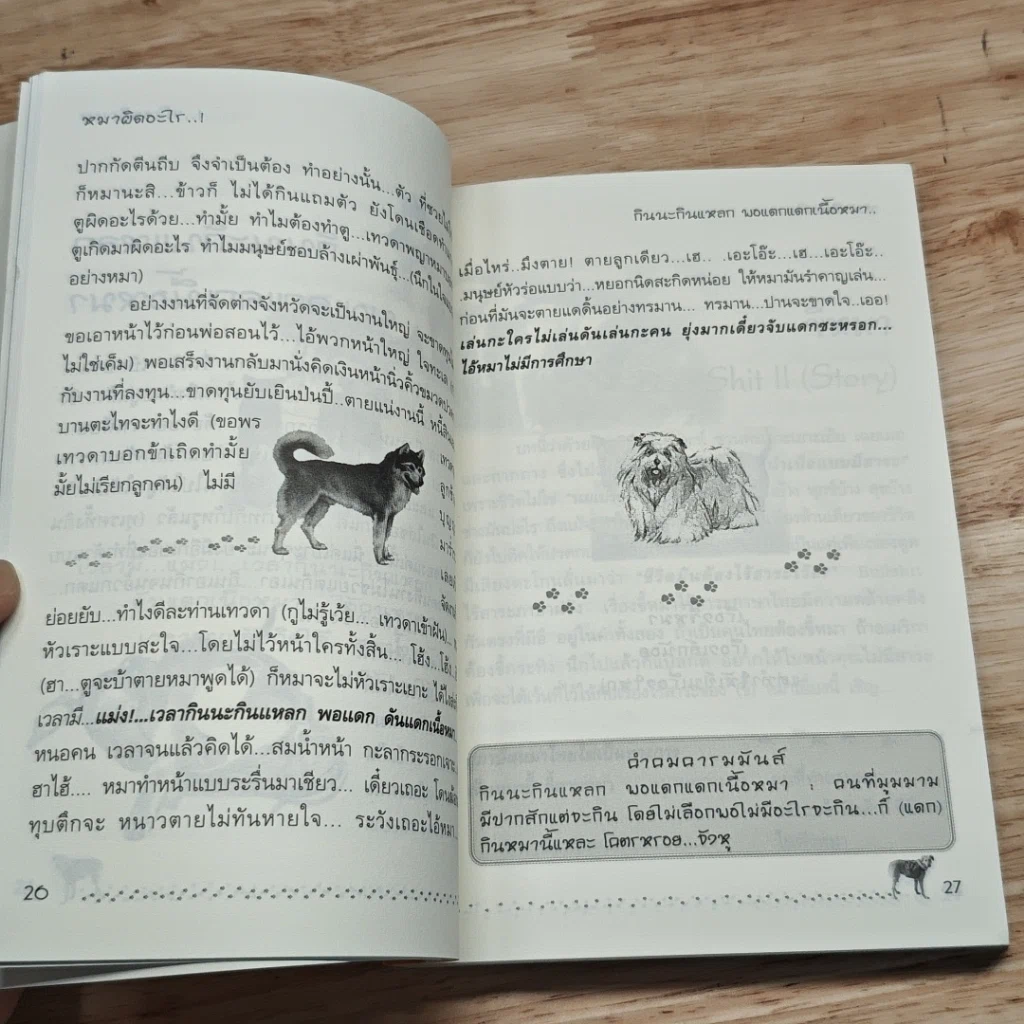 หมาผิดอะไร..!
ปากกัดตีนถีบ จึงจำเป็นต้อง ทำอย่างนั้น...ตัว ที่ซวย
ก็หมานะสิ...ข้าวก็ ไม่ได้กินแถมตัว ยังโดนเชือด
ตูผิดอะไรด้วย...ทำมั้ย ทำไมต้องทำตู...เทวดาพญาหมา
ตูเกิดมาผิดอะไร ทำไมมนุษย์ชอบล้างเผ่าพันธุ์...(นึกในใจ
อย่างหมา)
อย่างงานที่จัดต่างจังหวัดจะเป็นงานใหญ่ จะขาด
ขอเอาหน้าไว้ก่อนพ่อสอนไว้...ไอ้พวกหน้าใหญ่ ใจทะเล
ไม่ใช่เค็ม) พอเสร็จงานกลับมานั่งคิดเงินหน้านิ่วคิ้วขมวด
กับงานที่ลงทุน...ขาดทุนยับเยินป่นปี้..ตายแน่งานนี้
บานตะไทจะทำไงดี (ขอพร
เทวดาบอกข้าเถิดทำมั้ย
มั้ยไม่เรียกลูกคน) ไม่มี
ย่อยยับ...ทำไงดีละท่านเทวดา (กูไม่รู้เว้ย... เทวดาเข้าฝัน)
หัวเราะแบบสะใจ...โดยไม่ไว้หน้าใครทั้งสิ้น... โฮ้ง...โฮ้ง
(ฮา...ตูจะบ้าตายหมาพูดได้) ก็หมาจะไม่หัวเราะเยาะ ได้
เวลามี...แม่ง!...เวลากินนะกินแหลก พอแดก ดันแดกเนื้อหมา
หนอคน เวลาจนแล้วคิดได้...สมน้ำหน้า กะลากระรอกเจาะ
ฮาไฮ้.... หมาทำหน้าแบบระรื่นมาเชียว... เดี๋ยวเถอะ
ทุบตึกจะ หนาวตายไม่ทันหายใจ... ระวังเถอะไอ้หมา
26
กินนะกินแหลก พอแดกแดกเนื้อหมา..
เมื่อไหร่..มึงตาย! ตายลูกเดียว...เฮ.. .เอะโอ๊ะ...เฮ...เอะโอ๊ะ..
.มนุษย์หัวร่อแบบว่า...หยอกนิดสะกิดหน่อย ให้หมามันรำคาญเล่น...
ก่อนที่มันจะตายแดดิ้นอย่างทรมาน... ทรมาน...ปานจะขาดใจ..เออ!
เล่นกะใครไม่เล่นดันเล่นกะคน ยุ่งมากเดี๋ยวจับแดกซะหรอก...
ไอ้หมาไม่มีการศึกษา
คำคมคารมมันส์
กินนะกินแหลก พอแดกแดกเนื้อหมา : คนที่มูมมาม
มีปากสักแต่จะกิน โดยไม่เลือกพอไม่มีอะไรจะกิน...ก็ (แดก)
กินหมานี้แหละ โคตรหรอย...จังหู
27